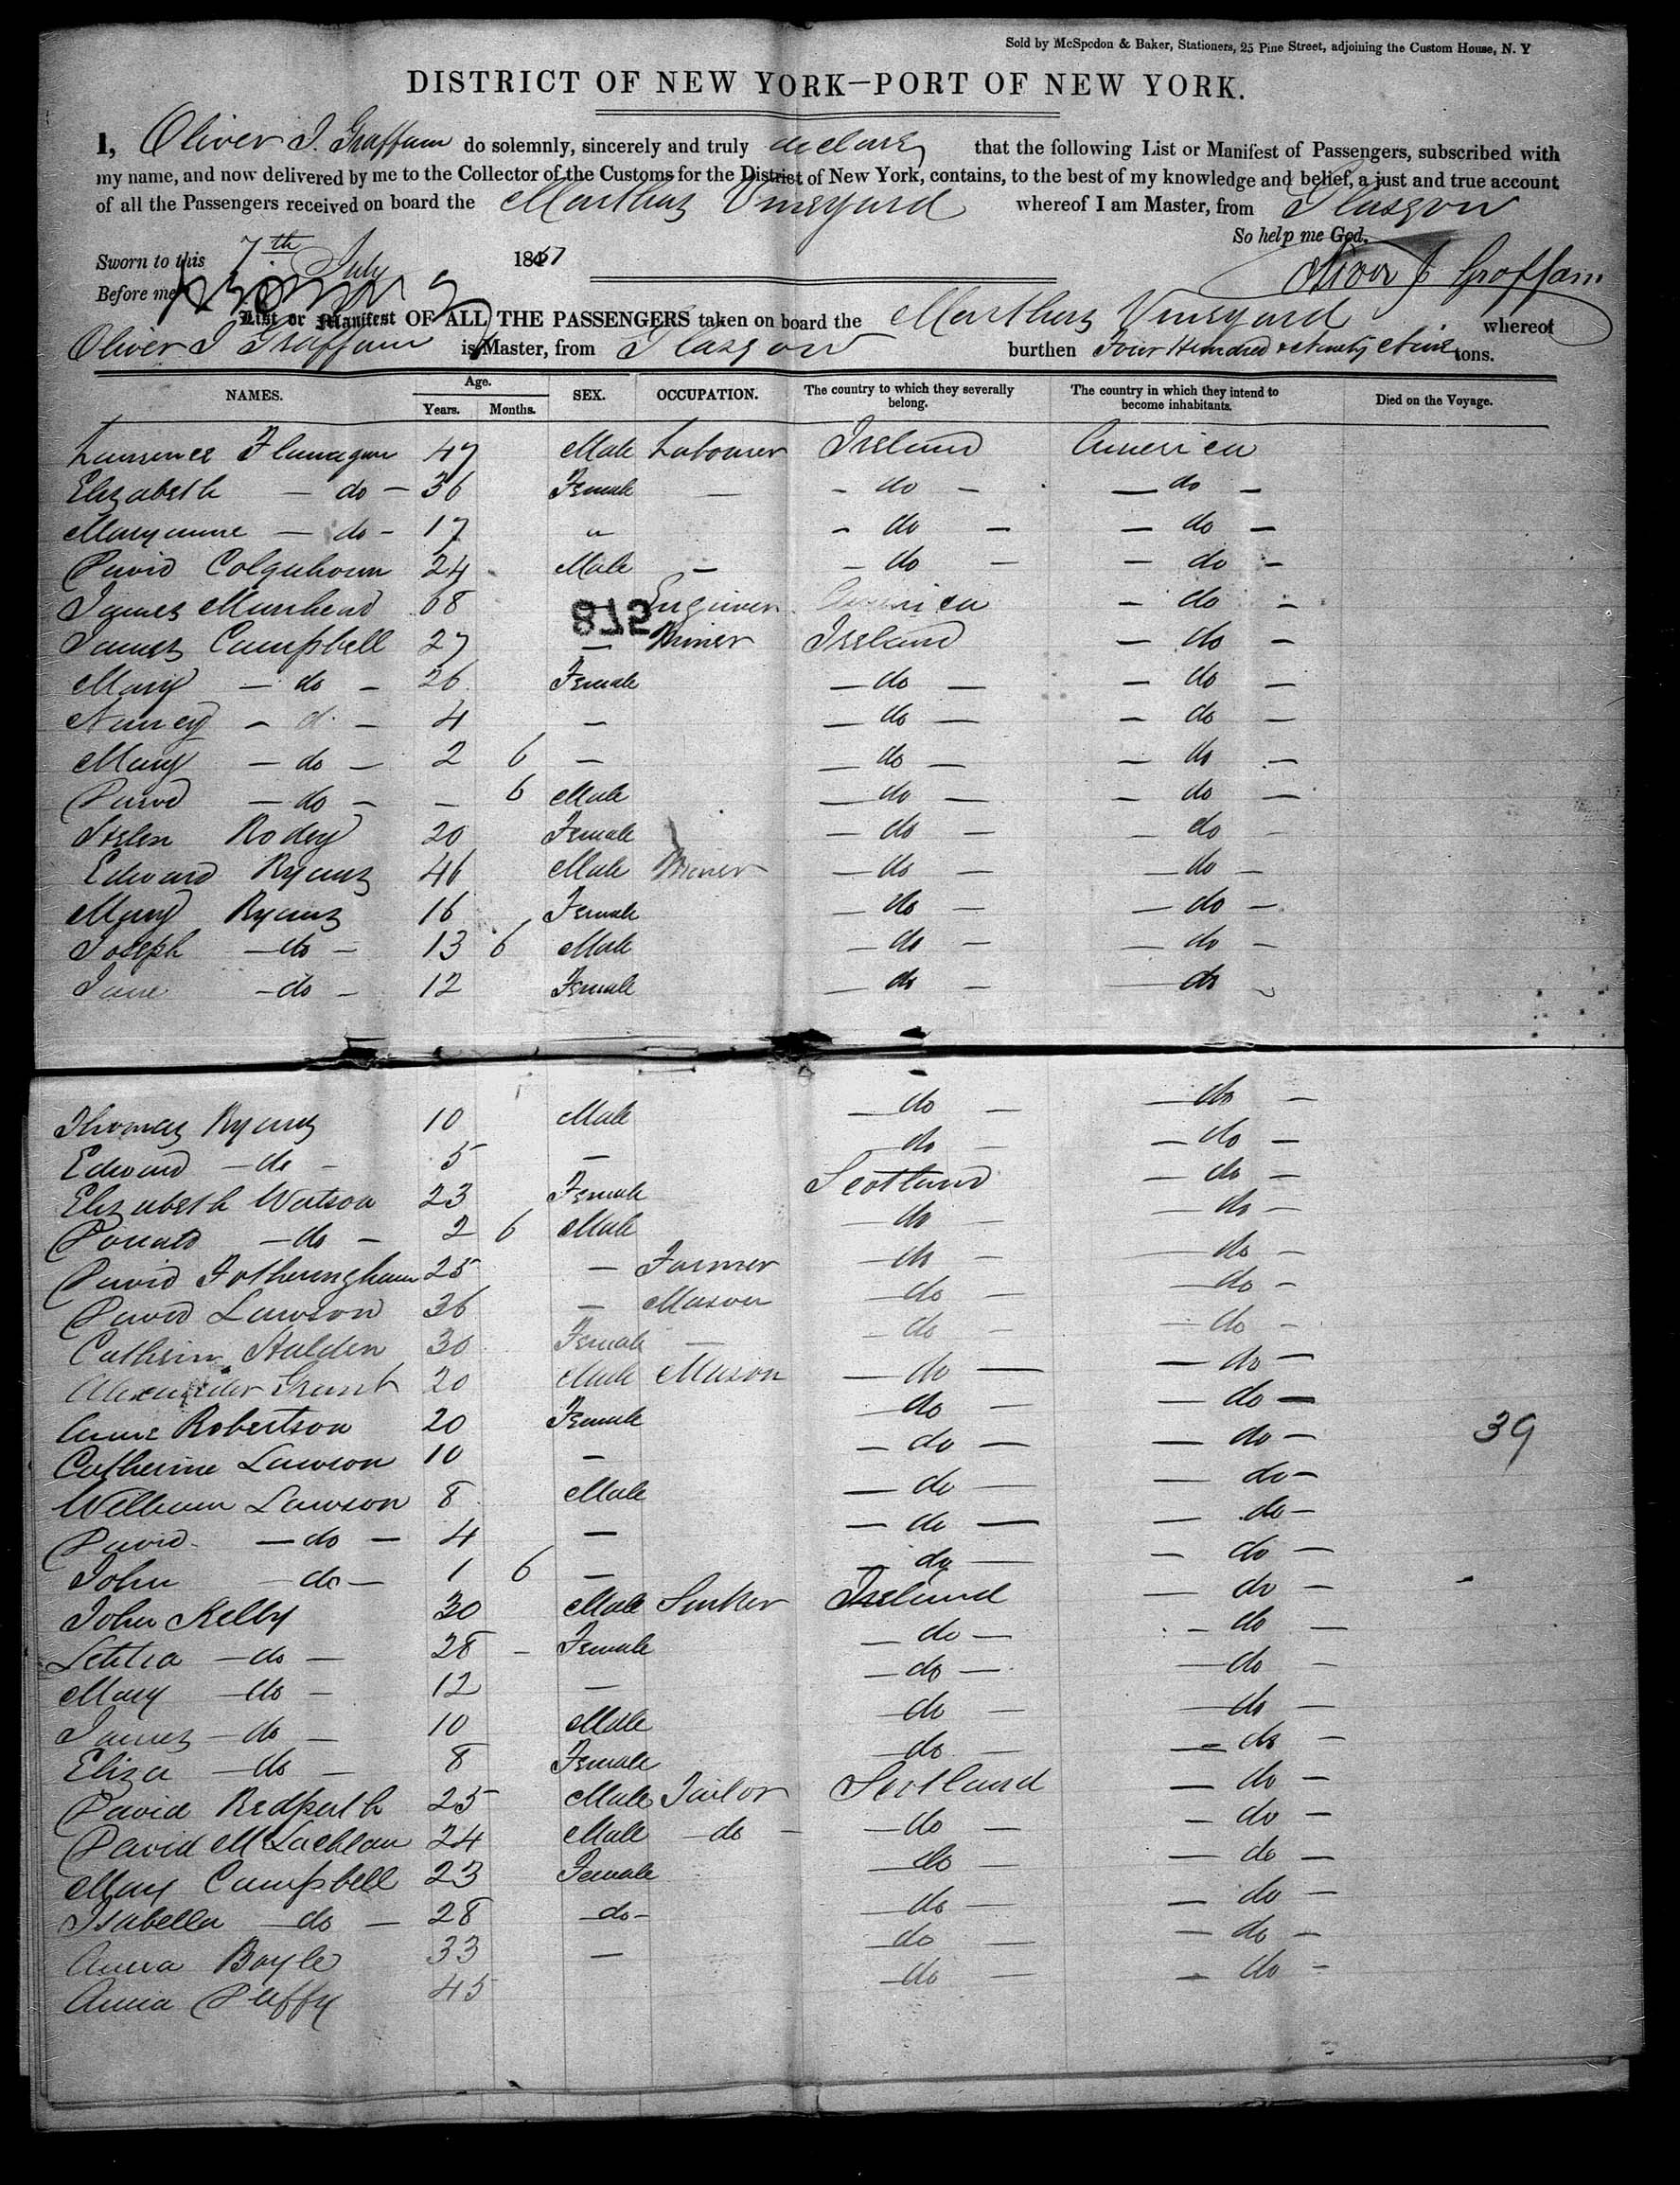 Sold by McSpedon & Baker, Stationers, 25 Pine Street, adjoining the Custom House, N. Y
DISTRICT OF NEW YORK—PORT OF NEW YORK.
I, Oliver J. Graffam do solemnly, sincerely and truly declare that the following List or Manifest of Passengers, subscribed with
my name, and now delivered by me to the Collector of the Customs for the District of New York, contains, to the best of my knowledge and belief, a just and true account
of all the Passengers received on board the Marthas Vineyard whereof I am Master, from Glasgow
So help me God.
Sworn to this 7th July 18
Before me
Oliver J Graffam
List or Manifest OF ALL THE PASSENGERS taken on board the Marthas Vineyard whereof
Oliver J Graffam is Master, from Glasgow burthen Four Hundred & Ninety Nine tons.
NAMES. Age. Years. Months. SEX. OCCUPATION. The country to which they severally belong. The country in which they intend to become inhabitants. Died on the Voyage.
Laurence Flanagan 47 Male Labourer Ireland America
Elizabeth — do — 36 Female — - do - — do —
Maryanne — do - 17 " - do — — do —
David Colquhoun 24 Male — - do — — do —
James Muirhead 68 — Engineer America — do —
8752
James Campbell 27 — Miner Ireland — do —
Mary — do — 26 Female — do — — do —
Nancy — d. — 4 — — do — — do —
Mary — do — 2 6 — — do — — do —
David — do — — 6 Male — do — — do —
Helen Rodey 20 Female — do — — do —
Edward Ryans 46 Male Miner — do — — do —
Mary Ryans 16 Female — do — — do —
Joseph — do — 13 6 Male — do — — do —
Jane — do — 12 Female — do — — do —
Thomas Ryans 10 Male — do — — do —
Edward — do — 5 — — do — — do —
Elizabeth Watson 23 Female Scotland — do —
Donald — do — 2 6 Male — do — — do —
David Fotheringham 25 — Farmer — do — — do —
David Lawson 36 — Mason — do — — do —
Catherin Halden 30 Female — — do — — do —
Alexander Grant 20 Male Mason — do — — do —
Anne Robertson 20 Female — do — — do —
39
Catherine Lawson 10 — — do — — do —
William Lawson 8 Male — do — — do —
David — do — 4 — — do — — do —
John — do — 1 6 — — do — — do —
John Kelly 30 Male Sinker Ireland — do —
Letitia — do — 28 - Female — do — — do —
Mary — do — 12 — — do — — do —
James — do — 10 Male — do — — do —
Eliza — do — 8 Female — do — — do —
David Redpath 25 Male Tailor Scotland — do —
David McLachlan 24 Male — do — — do — — do —
Mary Campbell 23 Female — do — — do —
Isabella — do — 28 — do — — do — — do —
Anna Boyle 33 — — do — — do —
Anna Duffy 45 — do — — do —